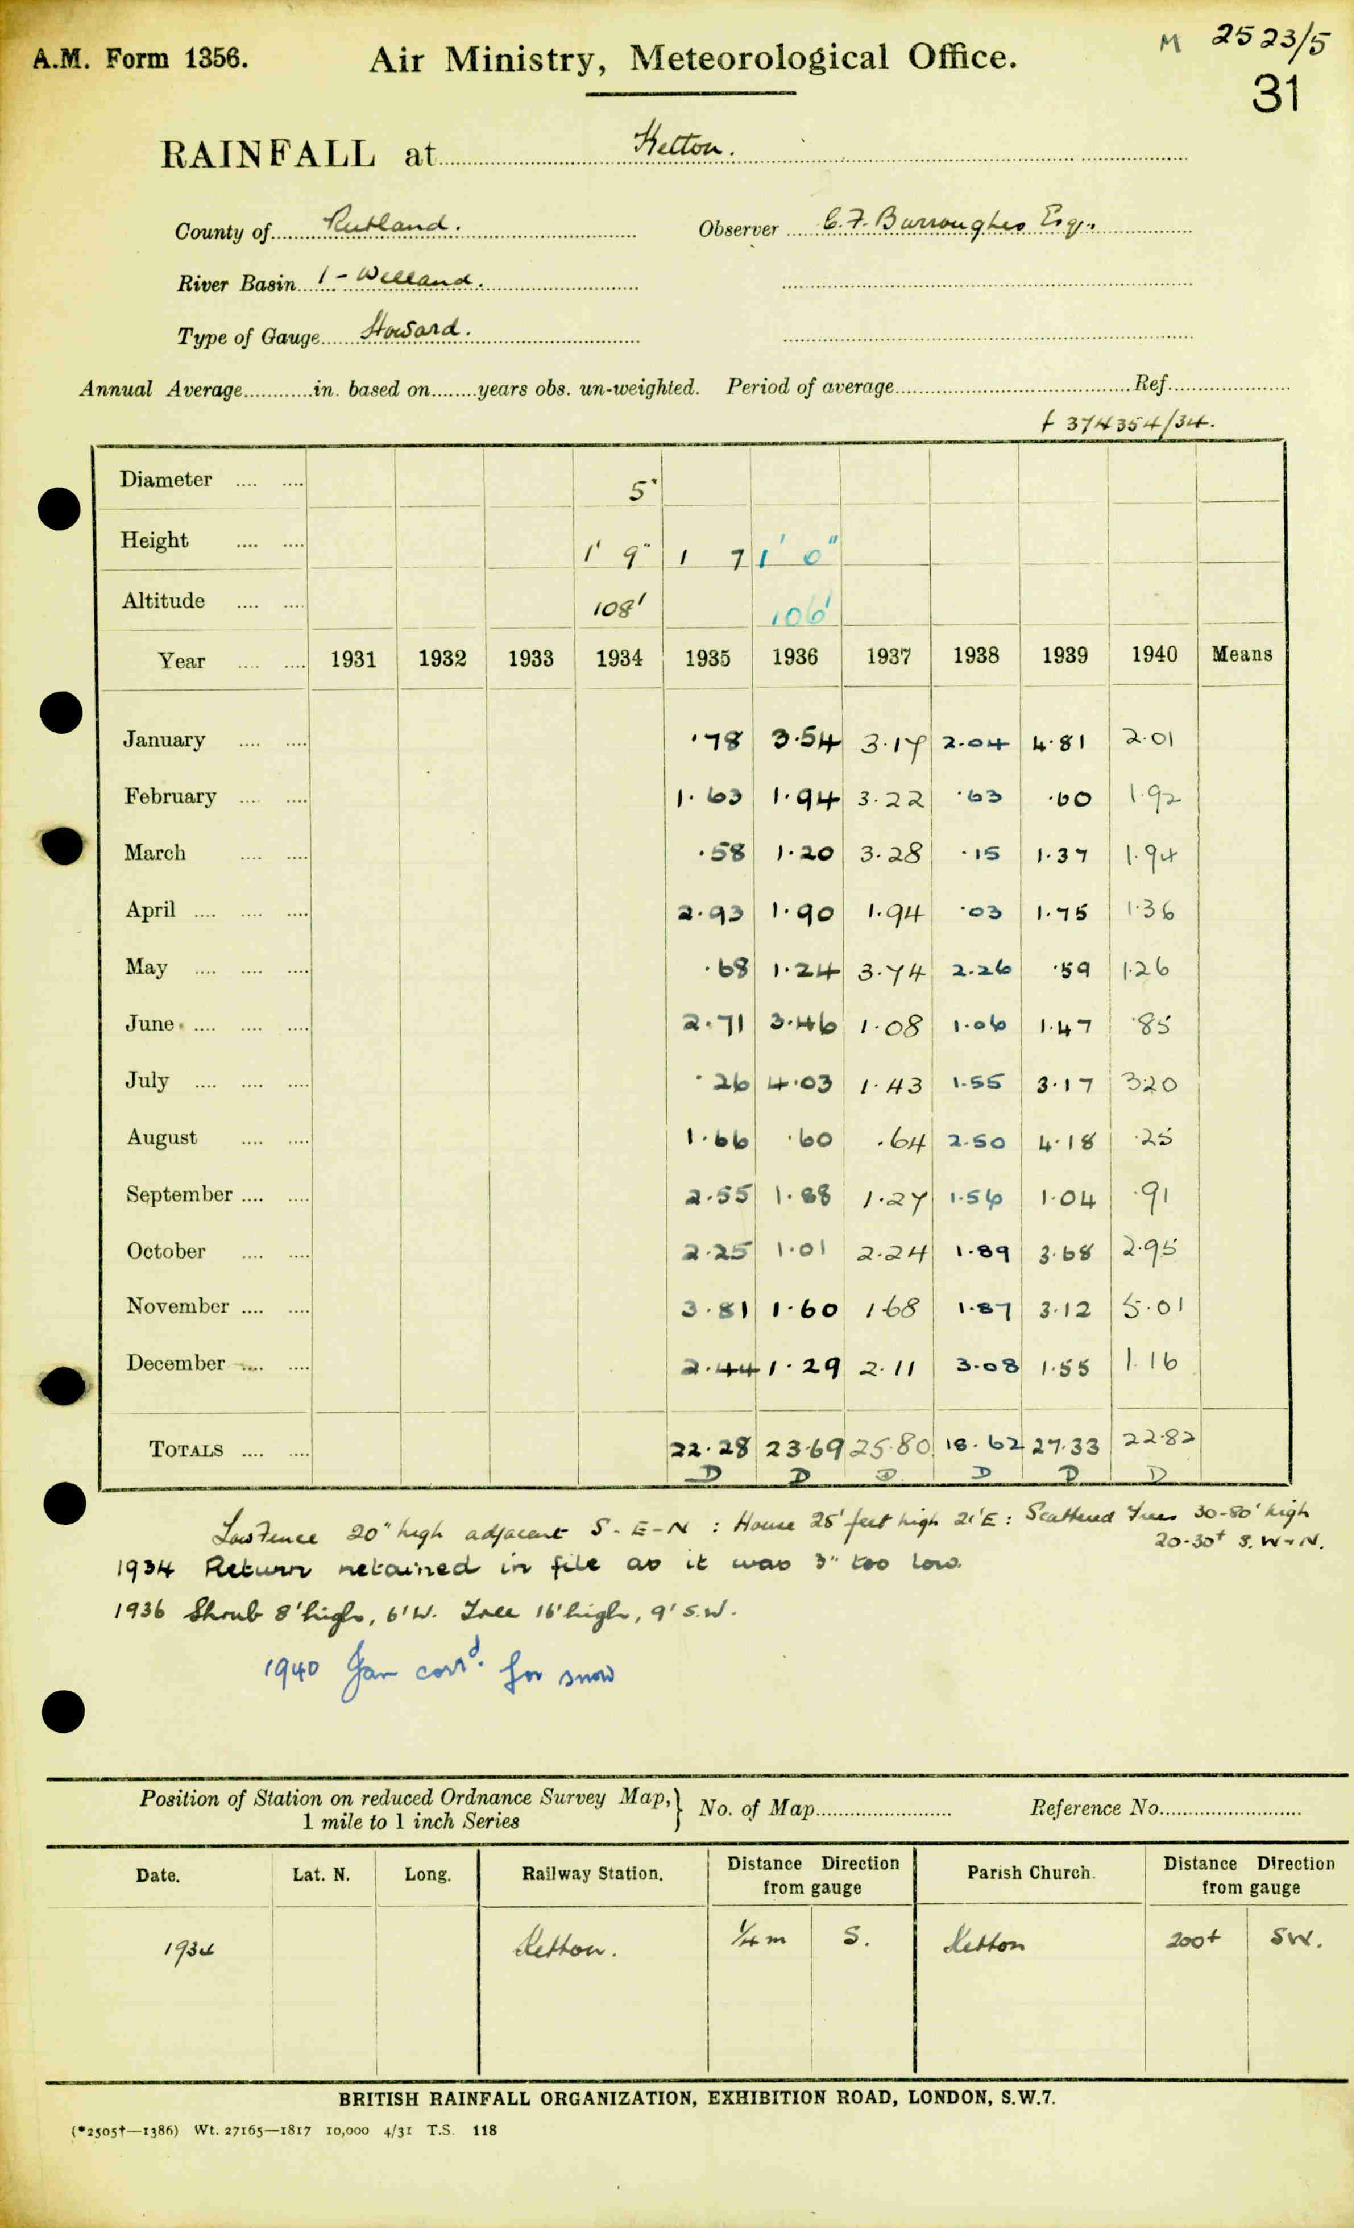 A.M. Form 1356. Air Ministry, Meteorological Office. M 2523/5
31
RAINFALL at Ketton.
County of Rutland. Observer C.F. Burroughes Esq.
River Basin 1 - Welland.
Type of Gauge Howard.
Annual Average in. based on years obs. un-weighted. Period of average Ref.
f 374354/34.
Diameter 5"
Height 1' 9" 1 7 1' 0"
Altitude 108' 106'
Year 1931 1932 1933 1934 1935 1936 1937 1938 1939 1940 Means
January ·78 3·54 3·17 2·04 4·81 2·01
February 1·63 1·94 3·22 ·63 ·60 1·92
March ·58 1·20 3·28 ·15 1·37 1·94
April 2·93 1·90 1·94 ·03 1·75 1·36
May ·68 1·24 3·74 2·26 ·59 1·26
June 2·71 3·46 1·08 1·06 1·47 ·85
July ·26 4·03 1·43 1·55 3·17 3·20
August 1·66 ·60 ·64 2·50 4·18 ·25
September 2·55 1·88 1·27 1·56 1·04 ·91
October 2·25 1·01 2·24 1·89 3·68 2·95
November 3·81 1·60 1·68 1·87 3·12 5·01
December 2·44 1·29 2·11 3·08 1·55 1·16
TOTALS 22·28 23·69 25·80 18·62 27·33 22·82
D D D D D D
Low Fence 20" high adjacent S - E - N : House 25' feet high 21' E : Scattered Trees 30-80' high
20-30+ S. W - N.
1934 Return retained in file as it was 3" too low.
1936 Shrub 8' high, 6' W. Tree 16' high, 9' S.W.
1940 Jan corrd. for snow
Position of Station on reduced Ordnance Survey Map, } No. of Map Reference No.
1 mile to 1 inch Series
Date. Lat. N. Long. Railway Station. Distance Direction from gauge Parish Church. Distance Direction from gauge
1934 Ketton. 1/4 m S. Ketton 200+ SW.
BRITISH RAINFALL ORGANIZATION, EXHIBITION ROAD, LONDON, S.W.7.
(*2505†—1386) Wt. 27165—1817 10,000 4/31 T.S. 118